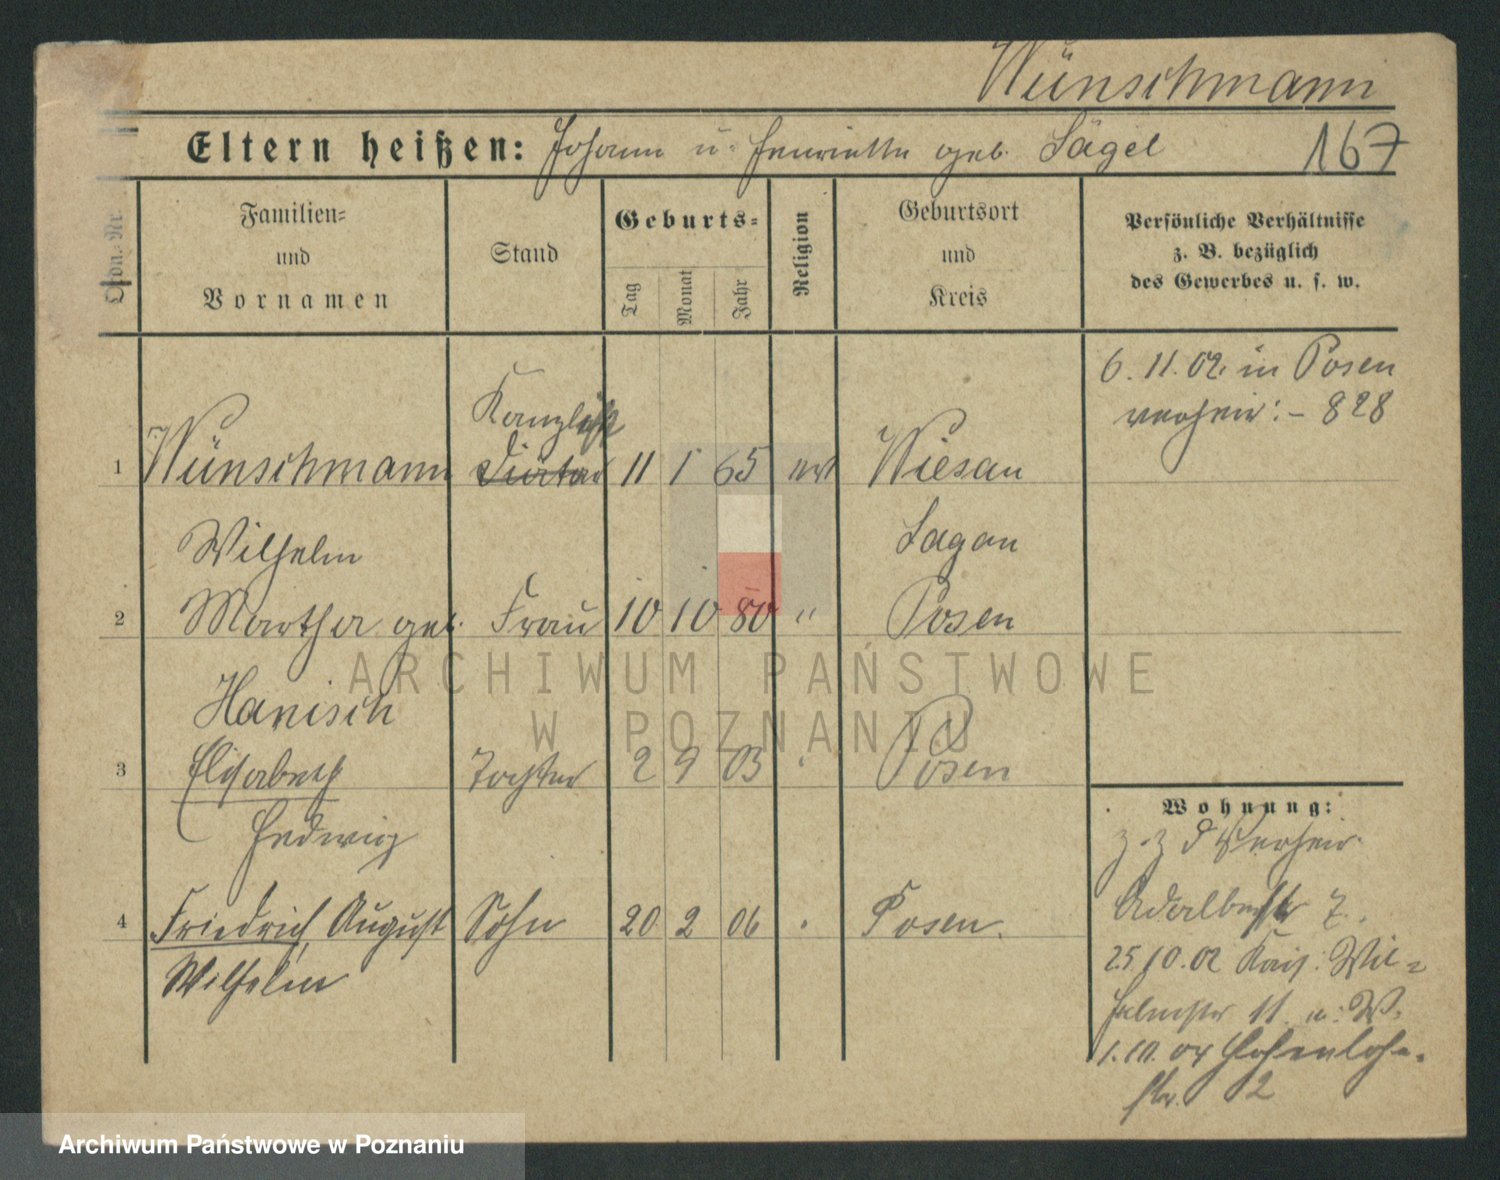 Wünschmann
Eltern heißen: Johann u. Henriette geb. Sägel
167
Ordn.-Nr.
Familien-
und
Vornamen
Stand
Geburts-
Tag
Monat
Jahr
Religion
Geburtsort
und
Kreis
Persönliche Verhältnisse
z. B. bezüglich
des Gewerbes u. s. w.
6.11.02 in Posen
verheir: - 828
Kanzlist
1 Wünschmann 11 1 65 Wiesau
Wilhelm Sagan
2 Martha geb. Frau 10 10 80 " Posen
Hanisch
3 Elisabeth Tochter 2 9 03 Posen
Hedwig
4 Friedrich August Sohn 20 2 06 Posen.
Wilhelm
Wohnung:
z. Z. Verheir.
Adalbertstr 7.
25.10.02 Kais: Wil-
helmstr 11 u: W.
1.10.04 Hohenlohe-
str. 2
ARCHIWUM PAŃSTWOWE
W POZNANIU
Archiwum Państwowe w Poznaniu